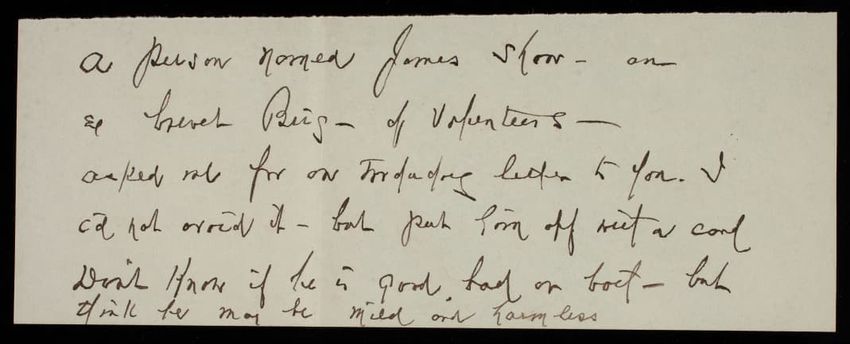 A person named James Shaw - an
ex brevet Brig - of Volunteers -
asked me for an introductory letter to you. I
cd not avoid it - but put him off with a card
Don't know if he is good, bad or both - but
think he may be mild and harmless